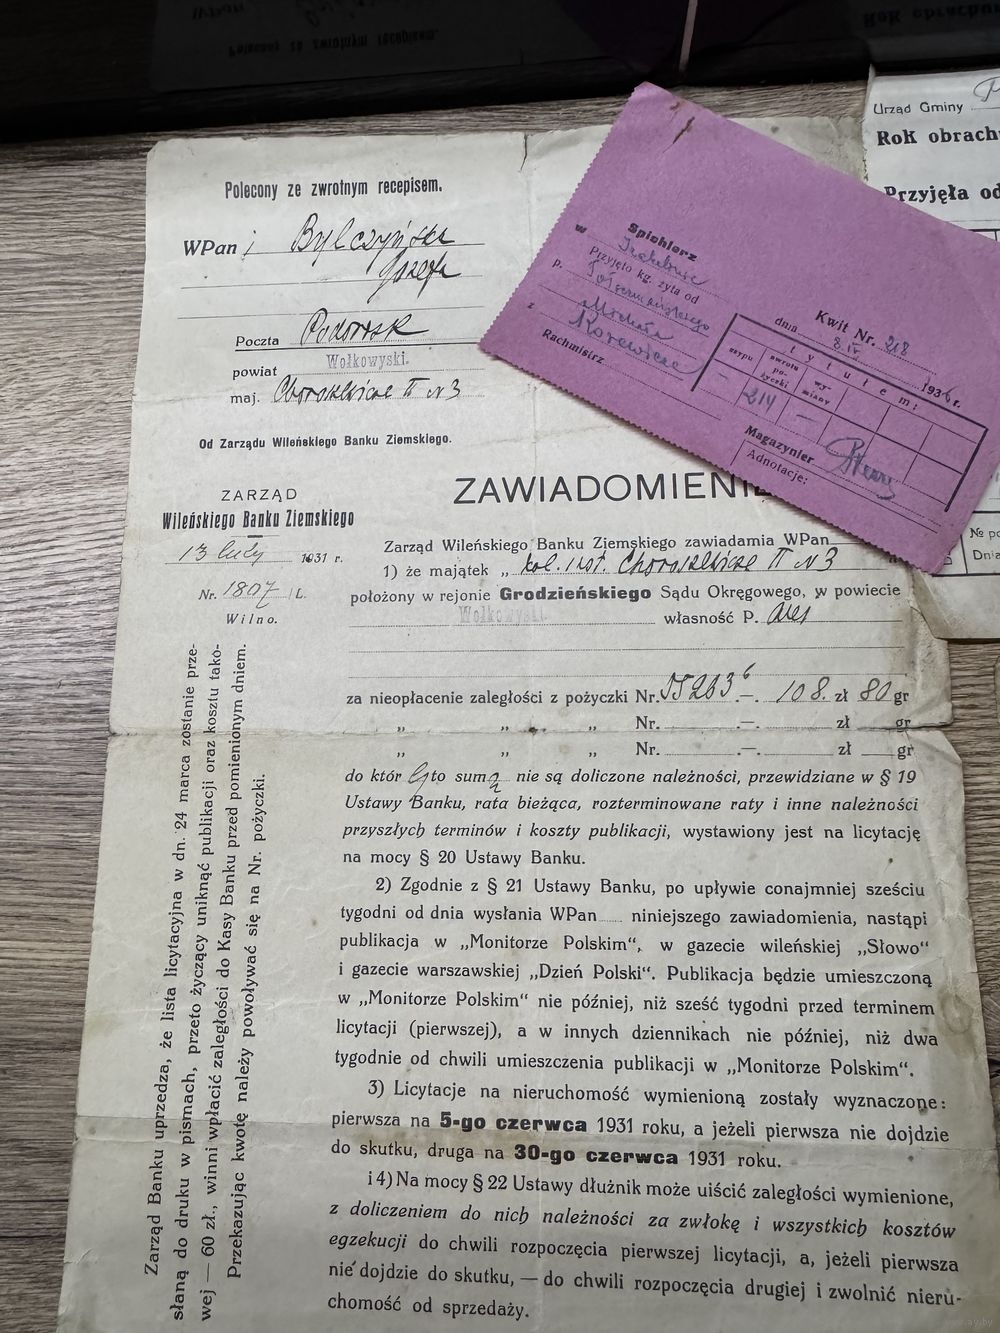 Polecony ze zwrotnym recepisem.
WPani Bylczyńska
Józefa
Poczta Podorosk
powiat Wołkowyski.
maj. Choroszewicze II N 3
Od Zarządu Wileńskiego Banku Ziemskiego.
ZARZĄD
Wileńskiego Banku Ziemskiego
13 luty 1931 r.
Nr. 1807/L.
Wilno.
Zarząd Banku uprzedza, że lista licytacyjna w dn. 24 marca zostanie prze-
słaną do druku w pismach, przeto życzący uniknąć publikacji oraz kosztu tako-
wej — 60 zł., winni wpłacić zaległości do Kasy Banku przed pomienionym dniem.
Przekazując kwotę należy powoływać się na Nr. pożyczki.
ZAWIADOMIENIE
Zarząd Wileńskiego Banku Ziemskiego zawiadamia WPan
1) że majątek „ kol. Choroszewicze II N 3
położony w rejonie Grodzieńskiego Sądu Okręgowego, w powiecie
Wołkowyski. własność P.
za nieopłacenie zaległości z pożyczki Nr. 55263 —. 108. zł 80 gr
„ „ „ Nr. —. zł gr
„ „ „ Nr. —. zł gr
do któr ej to sumą nie są doliczone należności, przewidziane w § 19
Ustawy Banku, rata bieżąca, rozterminowane raty i inne należności
przyszłych terminów i koszty publikacji, wystawiony jest na licytację
na mocy § 20 Ustawy Banku.
2) Zgodnie z § 21 Ustawy Banku, po upływie conajmniej sześciu
tygodni od dnia wysłania WPan niniejszego zawiadomienia, nastąpi
publikacja w „Monitorze Polskim“, w gazecie wileńskiej „Słowo“
i gazecie warszawskiej „Dzień Polski“. Publikacja będzie umieszczoną
w „Monitorze Polskim“ nie później, niż sześć tygodni przed terminem
licytacji (pierwszej), a w innych dziennikach nie później, niż dwa
tygodnie od chwili umieszczenia publikacji w „Monitorze Polskim“.
3) Licytacje na nieruchomość wymienioną zostały wyznaczone:
pierwsza na 5-go czerwca 1931 roku, a jeżeli pierwsza nie dojdzie
do skutku, druga na 30-go czerwca 1931 roku.
i 4) Na mocy § 22 Ustawy dłużnik może uiścić zaległości wymienione,
z doliczeniem do nich należności za zwłokę i wszystkich kosztów
egzekucji do chwili rozpoczęcia pierwszej licytacji, a, jeżeli pierwsza
nie dojdzie do skutku, — do chwili rozpoczęcia drugiej i zwolnić nieru-
chomość od sprzedaży.
Spichlerz
w
Przyjęto kg. żyta od
p.
Michała
z
Rachmistrz
Kwit Nr. 218
dnia 8.IV 1936 r.
tytułem:
zsypu
zwrotu po-
życzki
wy-
miany
– 214 –
Magazynier
Adnotacje:
Urząd Gminy
Rok obrach
Przyjęła od
№ po
Dnia
www.ay.by